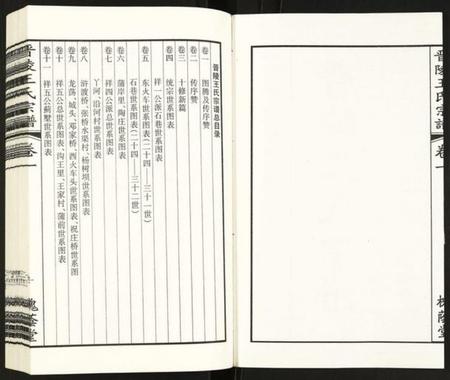 晋陵王氏宗谱总目录
卷一 图腾及传序赞
卷二 传序赞
卷三 十修新篇
卷四 统宗世系图表
祥一公派石巷世系图表
卷五 东火车世系图表(二十四 三十一世)
石巷世系图表(二十四 三十二世)
卷六 蒲岸里、陶庄世系图表
卷七 祥四公派总世系图表
丫河、沿河村世系图表
卷八 浒渡桥、张桥水渠村、杨树坝世系图表
卷九 龙荡、城头、邓家桥、西火车头世系图表、祝庄桥世系图
卷十 祥五公总世系图表、沟王里、王家村、蒲前世系图表
卷十一 祥五公蓟墅世系图表
晋陵王氏宗谱
卷一
槐荫堂
晋陵王氏宗谱 卷一
槐荫堂